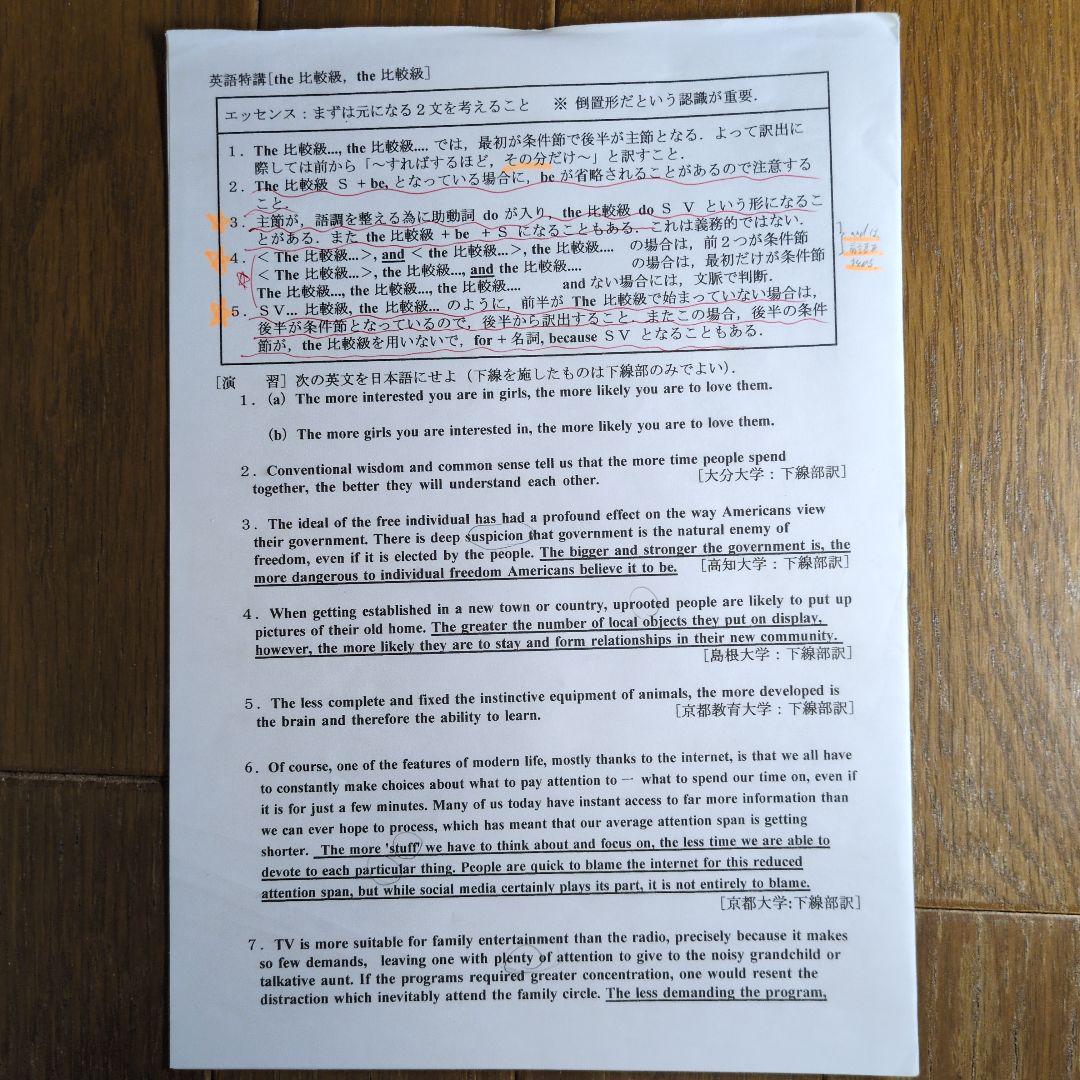 英語特講[the 比較級, the 比較級]
エッセンス：まずは元になる２文を考えること　※ 倒置形だという認識が重要.
１．The 比較級..., the 比較級.... では，最初が条件節で後半が主節となる．よって訳出に
際しては前から「～すればするほど，その分だけ～」と訳すこと．
２．The 比較級 Ｓ + be, となっている場合に，be が省略されることがあるので注意する
こと．
３．主節が，語調を整える為に助動詞 do が入り，the 比較級 do Ｓ Ｖ という形になるこ
とがある．また the 比較級 + be + Ｓ になることもある．これは義務的ではない．
４．< The 比較級...>, and < the 比較級...>, the 比較級.... の場合は，前２つが条件節
< The 比較級...>, the 比較級..., and the 比較級.... の場合は，最初だけが条件節
The 比較級..., the 比較級..., the 比較級.... and ない場合には，文脈で判断．
５．ＳＶ... 比較級, the 比較級... のように，前半が The 比較級で始まっていない場合は，
後半が条件節となっているので，後半から訳出すること．またこの場合，後半の条件
節が，the 比較級を用いないで，for + 名詞, because ＳＶ となることもある．
［演　習］次の英文を日本語にせよ（下線を施したものは下線部のみでよい）．
１．(a) The more interested you are in girls, the more likely you are to love them.
(b) The more girls you are interested in, the more likely you are to love them.
２．Conventional wisdom and common sense tell us that the more time people spend
together, the better they will understand each other.　［大分大学：下線部訳］
３．The ideal of the free individual has had a profound effect on the way Americans view
their government. There is deep suspicion that government is the natural enemy of
freedom, even if it is elected by the people. The bigger and stronger the government is, the
more dangerous to individual freedom Americans believe it to be.　［高知大学：下線部訳］
４．When getting established in a new town or country, uprooted people are likely to put up
pictures of their old home. The greater the number of local objects they put on display,
however, the more likely they are to stay and form relationships in their new community.
［島根大学：下線部訳］
５．The less complete and fixed the instinctive equipment of animals, the more developed is
the brain and therefore the ability to learn.　［京都教育大学：下線部訳］
６．Of course, one of the features of modern life, mostly thanks to the internet, is that we all have
to constantly make choices about what to pay attention to ― what to spend our time on, even if
it is for just a few minutes. Many of us today have instant access to far more information than
we can ever hope to process, which has meant that our average attention span is getting
shorter. The more 'stuff' we have to think about and focus on, the less time we are able to
devote to each particular thing. People are quick to blame the internet for this reduced
attention span, but while social media certainly plays its part, it is not entirely to blame.
［京都大学:下線部訳］
７．TV is more suitable for family entertainment than the radio, precisely because it makes
so few demands, leaving one with plenty of attention to give to the noisy grandchild or
talkative aunt. If the programs required greater concentration, one would resent the
distraction which inevitably attend the family circle. The less demanding the program,